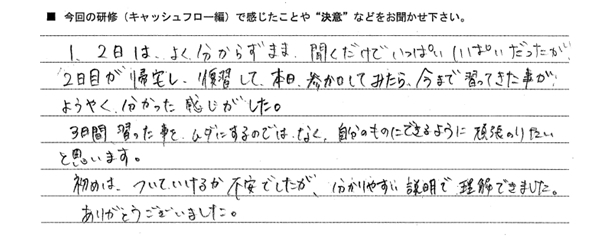 ■ 今回の研修（キャッシュフロー編）で感じたことや“決意”などをお聞かせ下さい。
1、2日は、よく分からずまま、聞くだけでいっぱいいっぱいだったが
2日目が帰宅し、復習して、本日、参加してみたら、今まで習ってきた事が
ようやく、分かった感じがした。
3日間、習った事を、ムダにするのでは、なく、自分のものにできるように頑張のりたい
と思います。
初めは、ついていけるか不安でしたが、分かりやすい説明で理解できました。
ありがとうございました。